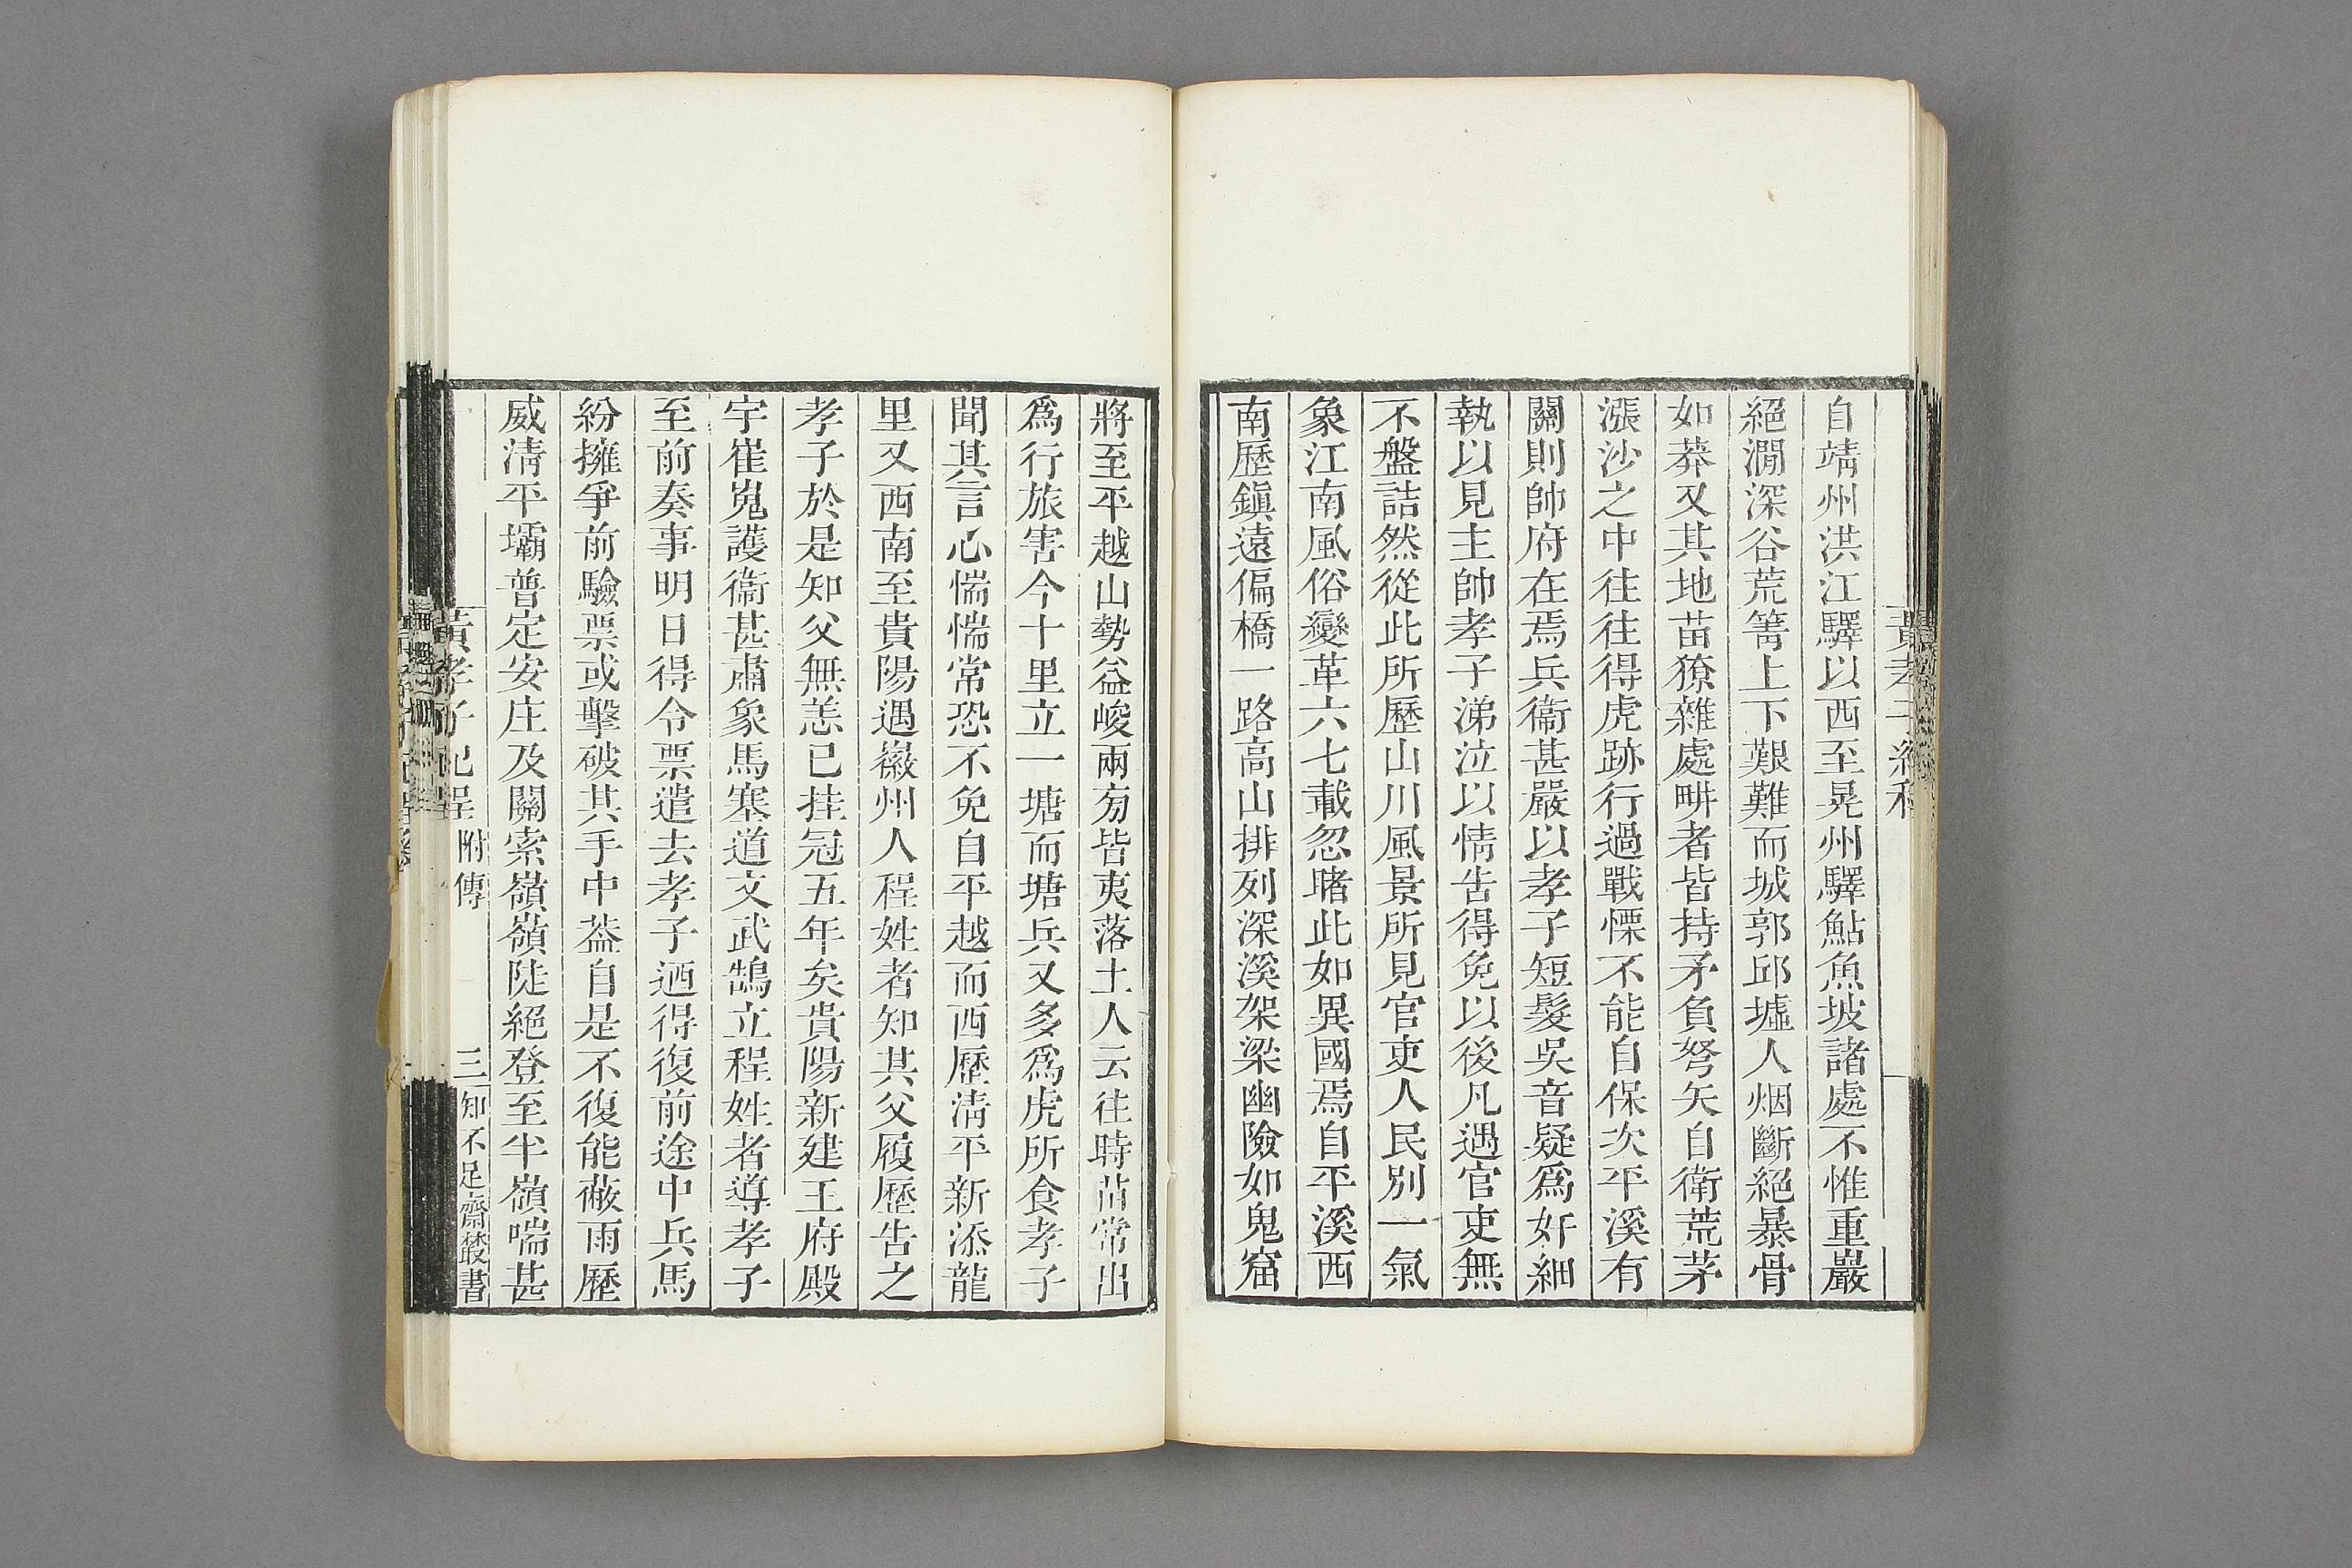 自靖州洪江驛以西至晃州驛鮎魚坡諸處不惟重巖
絕澗深谷荒箐上下艱難而城郭邱墟人烟斷絕暴骨
如莽又其地苗獠雜處畊者皆持矛負弩矢自衛荒茅
漲沙之中往往得虎跡行過戰慄不能自保次平溪有
關則帥府在焉兵衞甚嚴以孝子短髮吳音疑爲奸細
執以見主帥孝子涕泣以情告得免以後凡遇官吏無
不盤詰然從此所歷山川風景所見官吏人民別一氣
象江南風俗變革六七載忽睹此如異國焉自平溪西
南歷鎭遠偏橋一路高山排列深溪架梁幽險如鬼窟
將至平越山勢益峻兩旁皆夷落土人云往時苗常出
爲行旅害今十里立一塘而塘兵又多爲虎所食孝子
聞其言心惴惴常恐不免自平越而西歷淸平新添龍
里又西南至貴陽遇徽州人程姓者知其父履歷告之
孝子於是知父無恙已挂冠五年矣貴陽新建王府殿
宇崔嵬護衞甚肅象馬塞道文武鵠立程姓者導孝子
至前奏事明日得令票遣去孝子迺得復前途中兵馬
紛擁爭前驗票或擊破其手中葢自是不復能蔽雨歷
威淸平壩普定安庄及關索嶺嶺陡絕登至半嶺喘甚
黃孝子紀程 附傳 三 知不足齋叢書